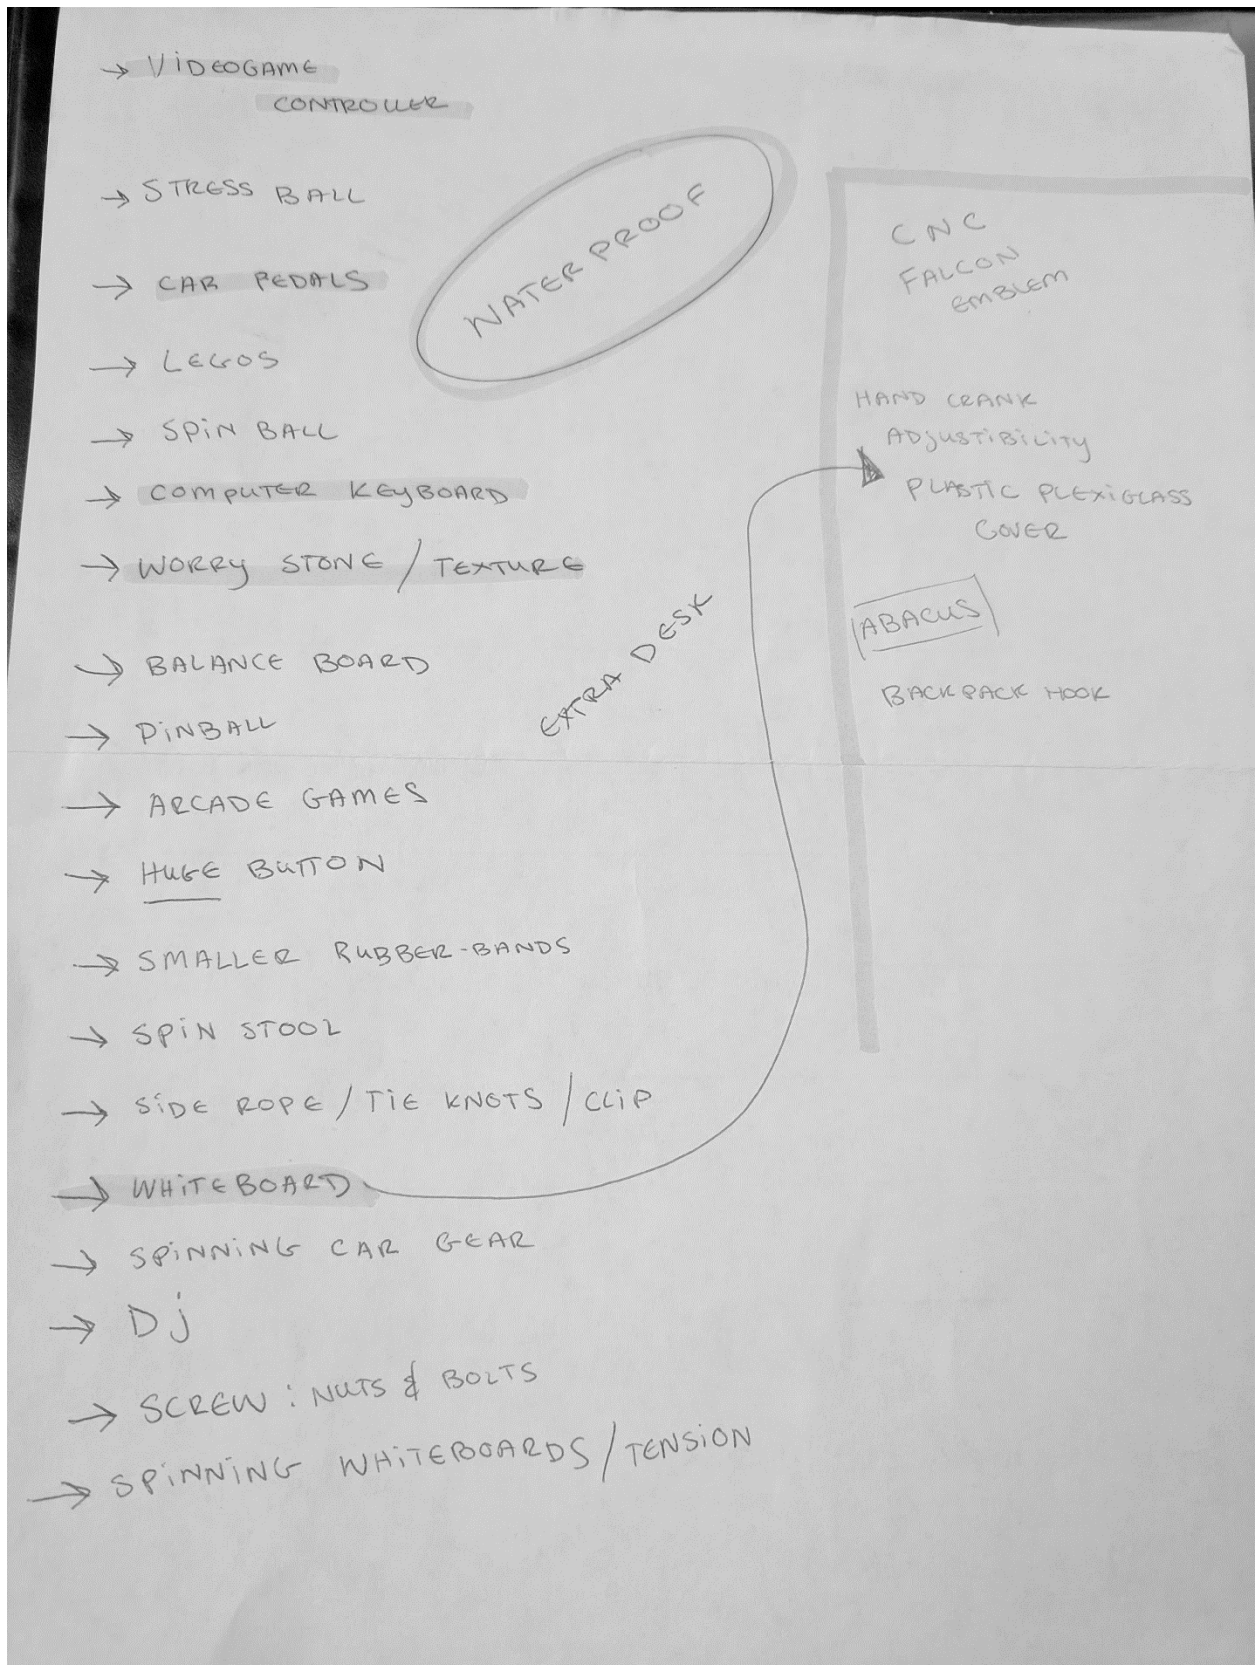 → VIDEOGAME
CONTROLLER
→ STRESS BALL
→ CAR PEDALS
→ LEGOS
→ SPIN BALL
→ COMPUTER KEYBOARD
→ WORRY STONE / TEXTURE
→ BALANCE BOARD
→ PINBALL
→ ARCADE GAMES
→ HUGE BUTTON
→ SMALLER RUBBER-BANDS
→ SPIN STOOL
→ SIDE ROPE / TIE KNOTS / CLIP
→ WHITEBOARD
→ SPINNING CAR GEAR
→ Dj
→ SCREW : NUTS & BOLTS
→ SPINNING WHITEBOARDS / TENSION
WATER PROOF
EXTRA DESK
CNC
FALCON
EMBLEM
HAND CRANK
ADJUSTIBILITY
PLASTIC PLEXIGLASS
COVER
ABACUS
BACKPACK HOOK